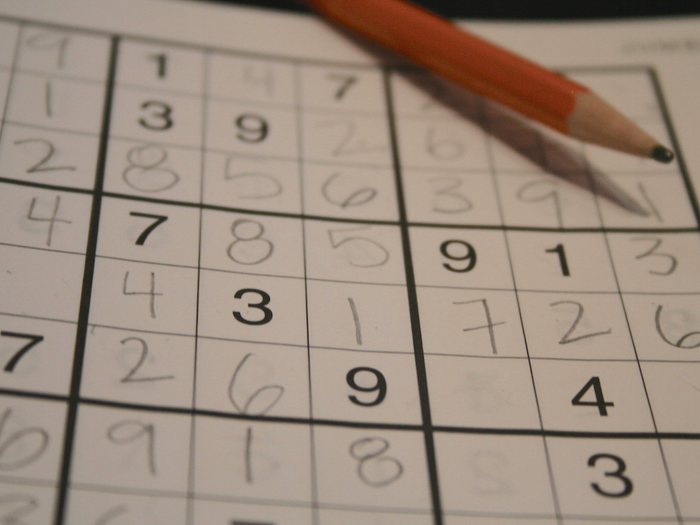 9 1 4 7
1 3 9 2 6
2 8 5 6 3 9 1
4 7 8 5 9 1 3
4 3 1 7 2 6
7 2 6 9 4
6 9 1 8 3